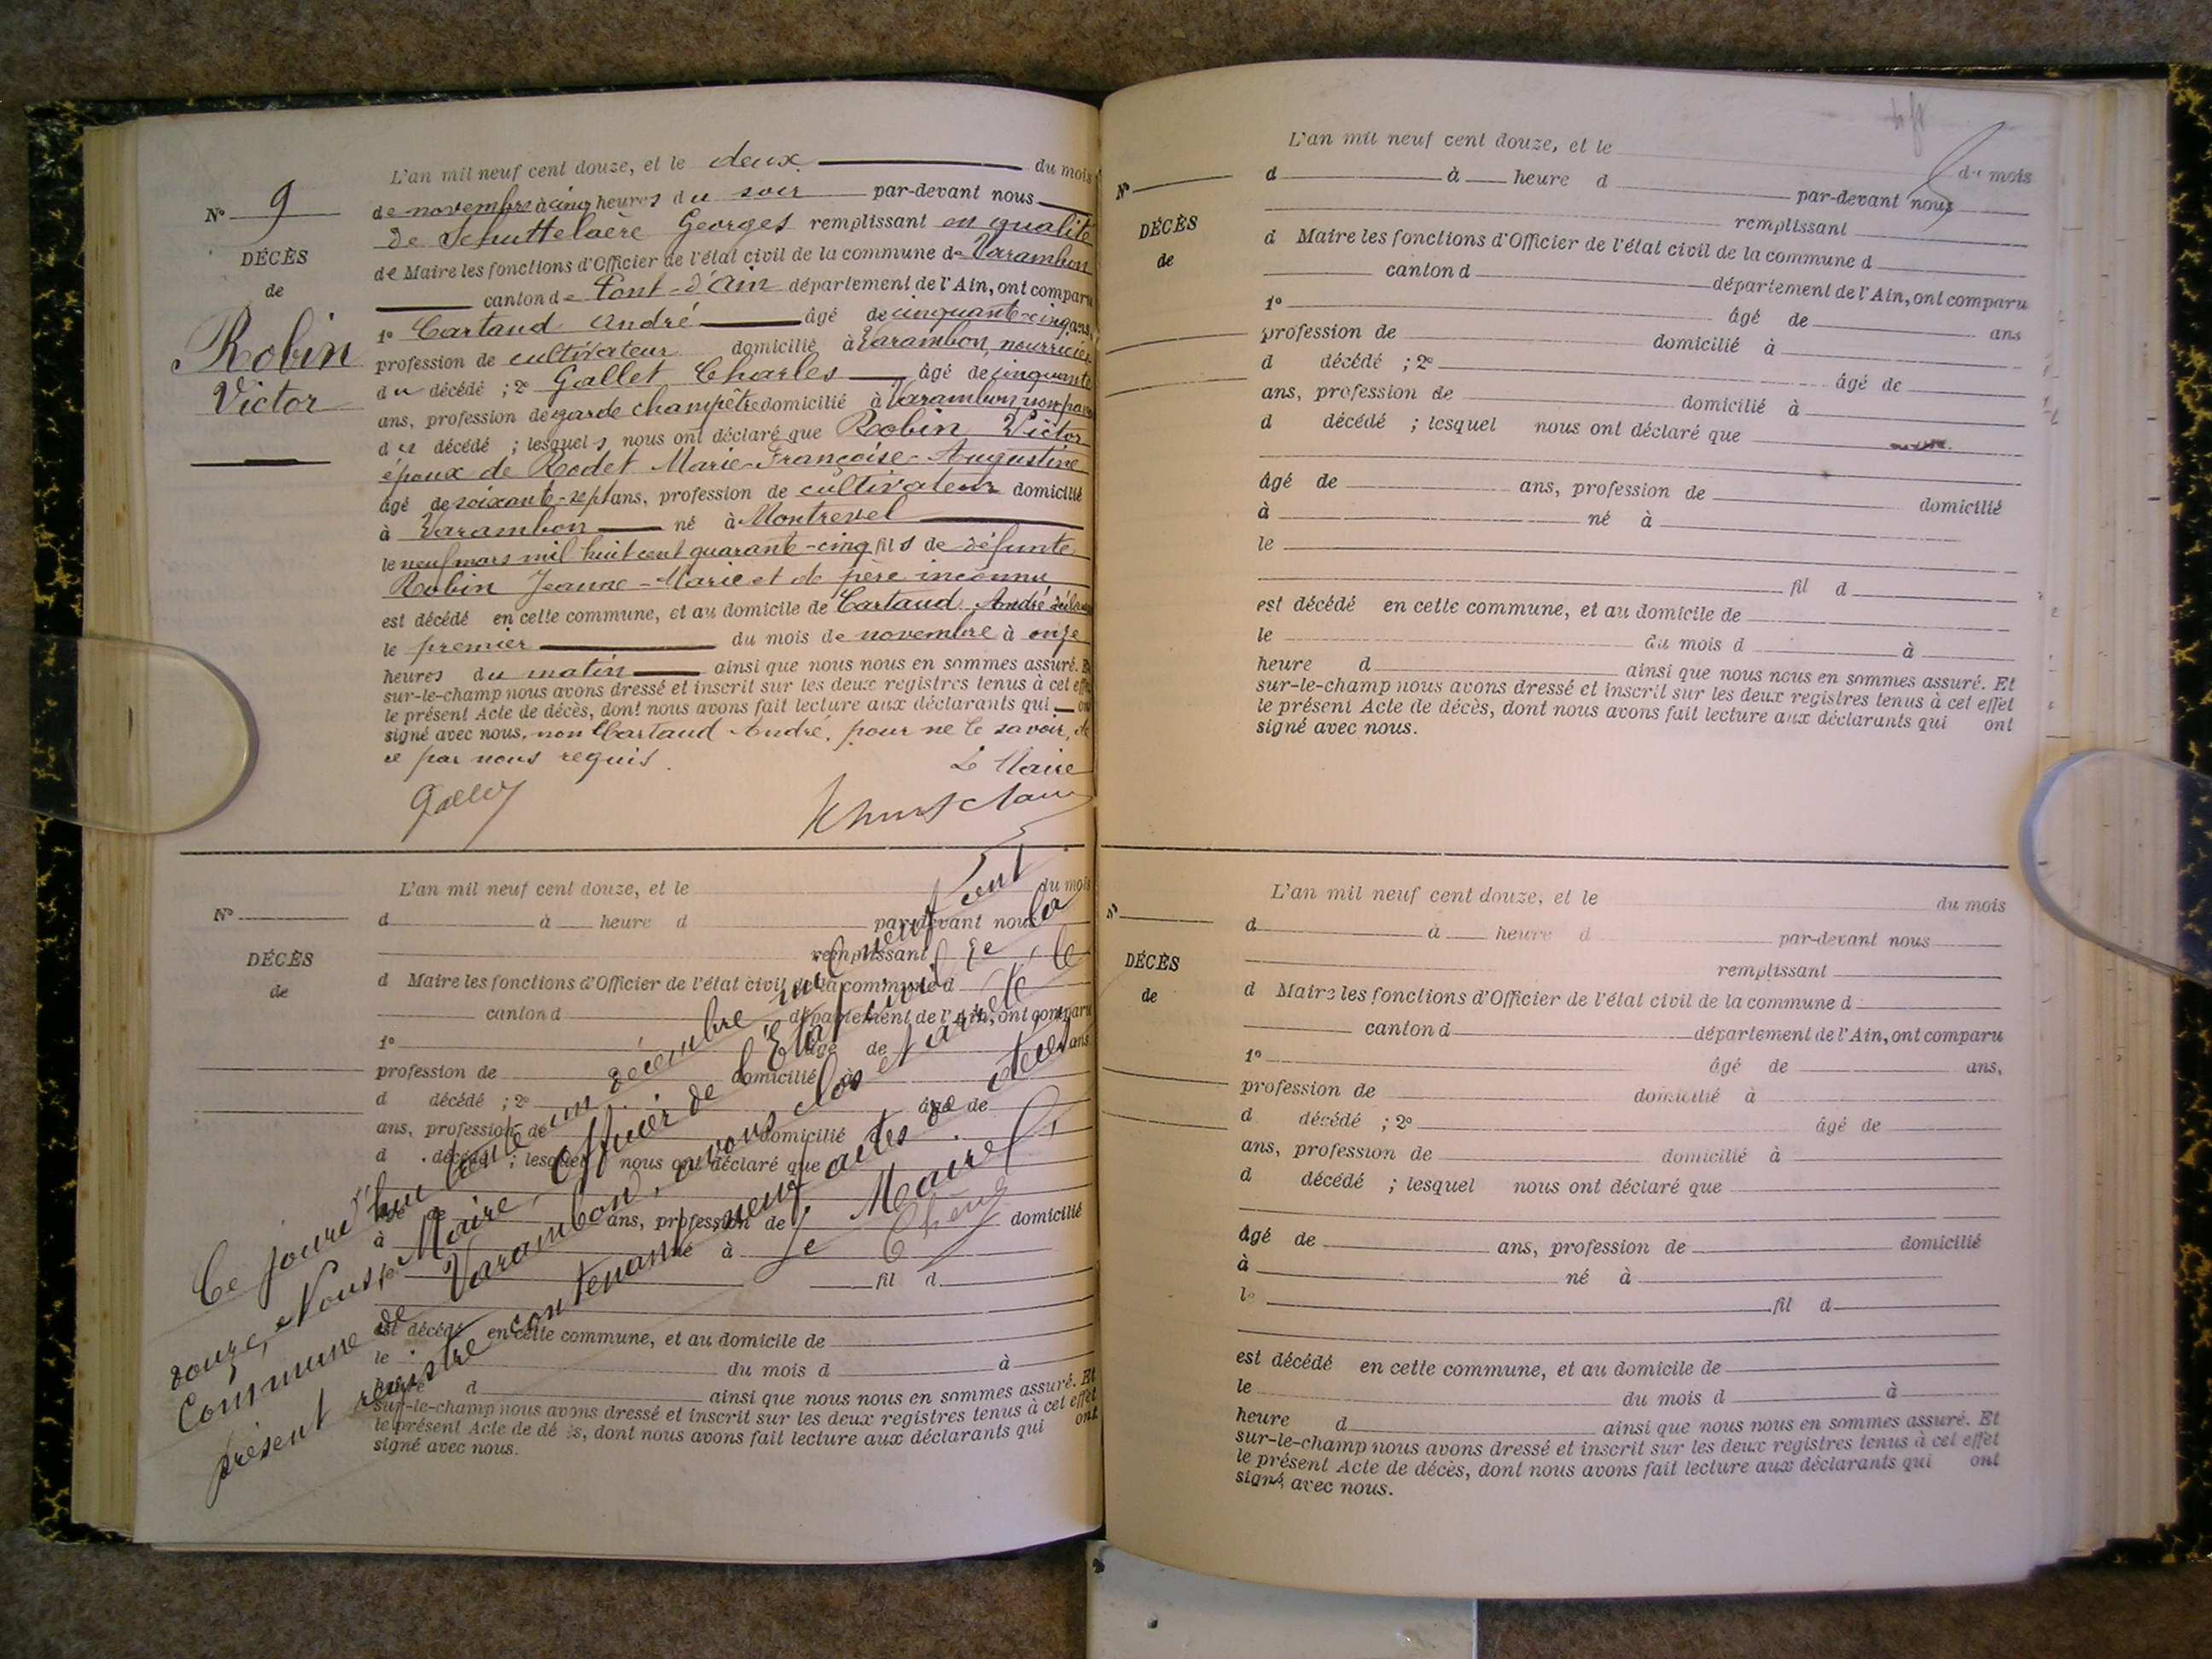 N° 9
DÉCÈS
de
Robin
Victor
L'an mil neuf cent douze, et le deux du mois
de novembre à cinq heures du soir par-devant nous
De Schuttelaère Georges remplissant en qualité
de Maire les fonctions d'Officier de l'état civil de la commune de Varambon
canton de Pont-d'Ain département de l'Ain, ont comparu
1° Cartaud André âgé de cinquante-cinq ans,
profession de cultivateur domicilié à Varambon, nourricier
du décédé ; 2° Gallet Charles âgé de cinquante
ans, profession de garde champêtre domicilié à Varambon, non
du décédé ; lesquels nous ont déclaré que Robin Victor
époux de Rodet Marie-Françoise-Augustine
âgé de soixante-sept ans, profession de cultivateur domicilié
à Varambon né à Montrevel
le neuf mars mil huit cent quarante-cinq fils de défunte
Robin Jeanne-Marie et de père inconnu
est décédé en cette commune, et au domicile de Cartaud André
le premier du mois de novembre à onze
heures du matin ainsi que nous nous en sommes assuré. Et
sur-le-champ nous avons dressé et inscrit sur les deux registres tenus à cet effet
le présent Acte de décès, dont nous avons fait lecture aux déclarants qui ont
signé avec nous, non Cartaud André, pour ne le savoir, de
ce par nous requis.
Le Maire
N°
DÉCÈS
de
L'an mil neuf cent douze, et le du mois
d à heure d par-devant nous
remplissant
d Maire les fonctions d'Officier de l'état civil de la commune d
canton d département de l'Ain, ont comparu
1° âgé de ans
profession de domicilié à
d décédé ; 2° âgé de
ans, profession de domicilié à
d décédé ; lesquel nous ont déclaré que
âgé de ans, profession de domicilié
à né à
le fil d
est décédé en cette commune, et au domicile de
le du mois d à
heure d ainsi que nous nous en sommes assuré. Et
sur-le-champ nous avons dressé et inscrit sur les deux registres tenus à cet effet
le présent Acte de décès, dont nous avons fait lecture aux déclarants qui ont
signé avec nous.
Ce jourd'hui trente un décembre mil neuf cent
douze, Nous, Maire, Officier de l'État civil de la
Commune de Varambon, avons clos et arrêté le
présent registre contenant neuf actes de décès
Le Maire
N°
DÉCÈS
de
L'an mil neuf cent douze, et le du mois
d à heure d par-devant nous
remplissant
d Maire les fonctions d'Officier de l'état civil de la commune d
canton d département de l'Ain, ont comparu
1° âgé de ans
profession de domicilié à
d décédé ; 2° âgé de
ans, profession de domicilié à
d décédé ; lesquel nous ont déclaré que
âgé de ans, profession de domicilié
à né à
le
fil d
est décédé en cette commune, et au domicile de
le du mois d à
heure d ainsi que nous nous en sommes assuré. Et
sur-le-champ nous avons dressé et inscrit sur les deux registres tenus à cet effet
le présent Acte de décès, dont nous avons fait lecture aux déclarants qui ont
signé avec nous.
N°
DÉCÈS
de
L'an mil neuf cent douze, et le du mois
d à heure d par-devant nous
remplissant
d Maire les fonctions d'Officier de l'état civil de la commune d
canton d département de l'Ain, ont comparu
1° âgé de ans,
profession de domicilié à
d décédé ; 2° âgé de
ans, profession de domicilié à
d décédé ; lesquel nous ont déclaré que
âgé de ans, profession de domicilié
à né à
le fil d
est décédé en cette commune, et au domicile de
le du mois d à
heure d ainsi que nous nous en sommes assuré. Et
sur-le-champ nous avons dressé et inscrit sur les deux registres tenus à cet effet
le présent Acte de décès, dont nous avons fait lecture aux déclarants qui ont
signé avec nous.